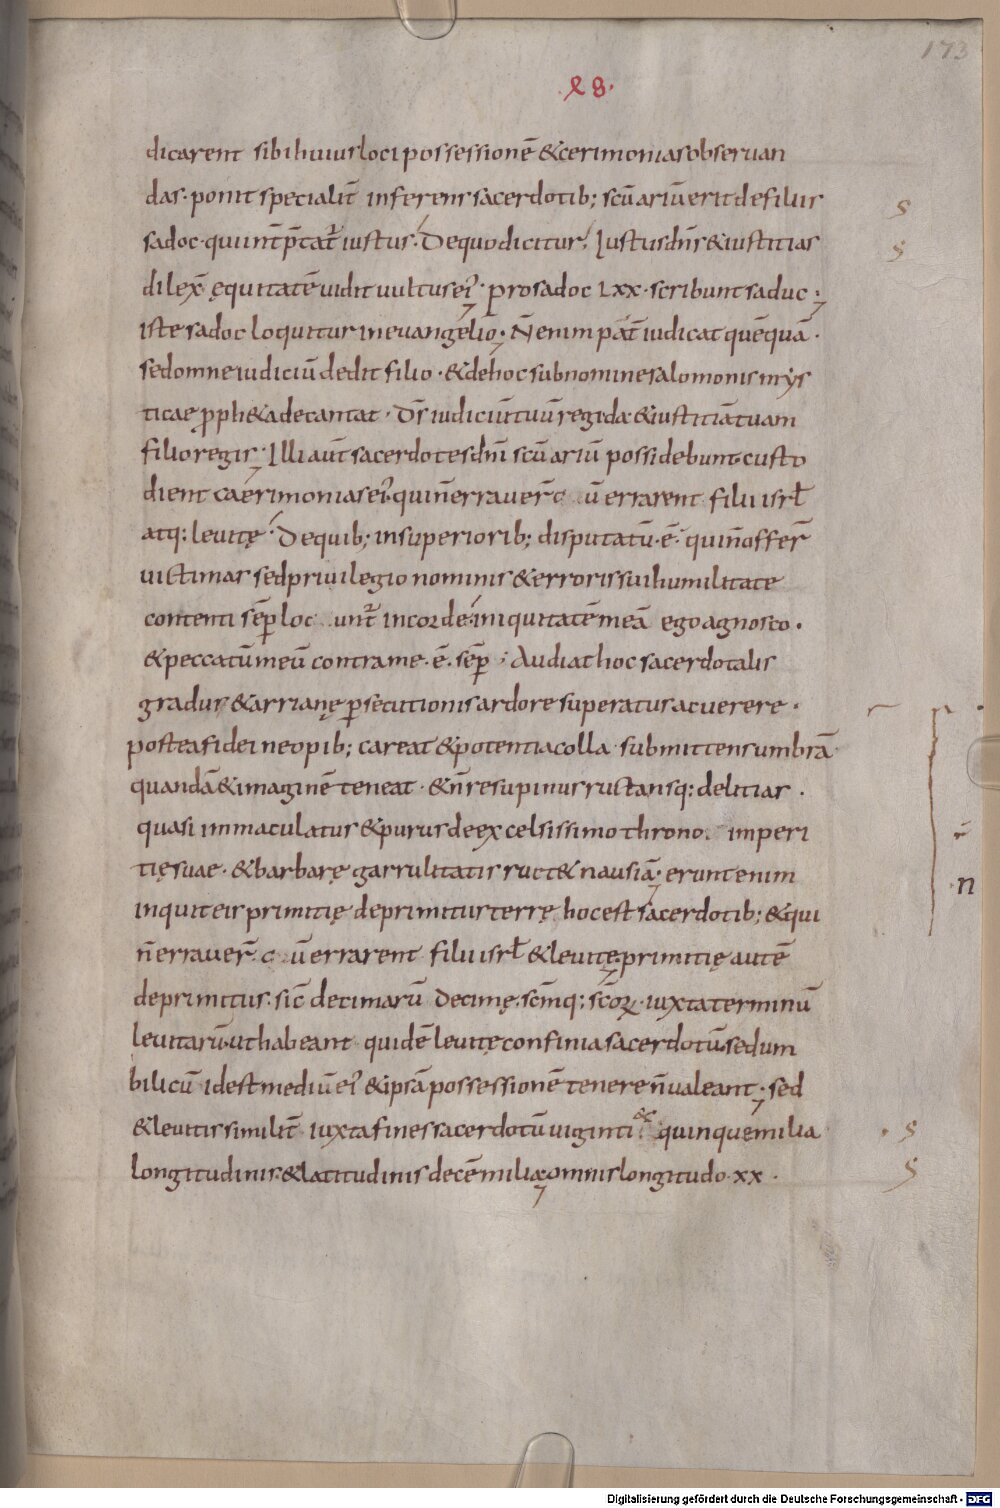 173
·l8·
dicarent sibi huius loci possessionē &cerimonias obseruan
das· ponit specialit̄ inferens sacerdotib; scūariū erit de filiis
sadoc· qui int̄p̄tat̄ iustus· De quo dicitur; Iustus dn̄s &iustitias
dilex̄ ęquitatē uidit uultus ei᾽· pro sadoc lxx· scribunt saduc·,
iste sadoc loquitur in euangelio·, N̄ enim pat̄ iudicat quēquā·
sed omne iudiciū dedit filio· &de hoc sub nomine salomonis mys
ticae pph&a decantat· Ds̄ iudiciū tuū regi da &iustitiā tuam
filio regis·, Illi aut̄ sacerdotes dn̄i scūariū possidebunt· custo
dient caerimonias ei᾽· qui n̄ errauer̄ c ū errarent filii isrl̄
atq: leuitę· De quib; in superiorib; disputatū·ē· qui n̄ offer̄
uictimas sed priuilegio nominis &erroris sui humilitate
contenti sēp loc unt̄ in corde· iniquitatē meā ego agnosco·
&peccatū meū contra me·ē·sēp; Audiat hoc sacerdotalis
gradus &arrianę p̱secutionis ardore superatus ac uerere·
postea fidei neopib; careat &potentia colla submittens umbrā
quandā &imaginē teneat· &n̄ resupinus ructansq: delitias·
quasi immaculatus &purus de excelsissimo throno imperi
tię suae· &barbarę garrulitatis ruct& nausiā·, erunt enim
inquit eis primitię de primitus terrę hoc est sacerdotib; &qui
n̄ errauer̄ c ū errarent filii isrl̄ &leuitę·, primitię autē
de primitus· sic̄ decimarū decimę· sc̄mq: sc̄orꝝ· iuxta terminū
leuitarū· ut habeant quidē leuitę confinia sacerdotū· sed um
bilicū idest mediū ei᾽ &ip̄sā possessionē tenere n̄ ualeant·, sed
&leuitis similit̄ iuxta fines sacerdotū uiginti &c quinque milia
longitudinis· &latitudinis decē milia·, omnis longitudo·xx·
n
Digitalisierung gefördert durch die Deutsche Forschungsgemeinschaft - DFG